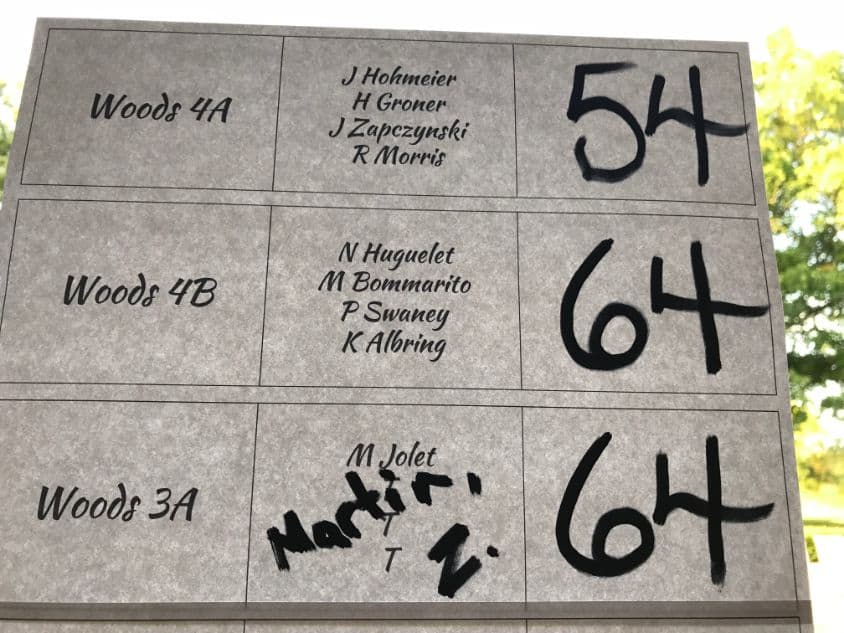 Woods 4A
J Hohmeier
H Groner
J Zapczynski
R Morris
54
Woods 4B
N Huguelet
M Bommarito
P Swaney
K Albring
64
Woods 3A
M Jolet
T
T
64